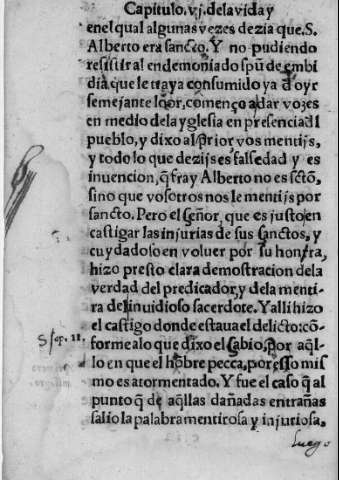 Capitulo. v j. dela vida y
enel qual algunas vezes dezia que. S.
Alberto era sancto. Y no pudiendo
resistir al endemoniado spũ de embi
dia que le traya consumido ya d̃ oyr
semejante loor, començo a dar vozes
en medio dela yglesia en presencia dl
pueblo, y dixo al prior vos mentijs,
y todo lo que dezijs es falsedad y es
inuencion, q̃ fray Alberto no es sctõ,
sino que vosotros nos le mentijs por
sancto. Pero el señor, que es justo en
castigar las injurias de sus sanctos, y
cuydadoso en voluer por su honrra,
hizo presto clara demostracion dela
verdad del predicador, y dela menti
ra del inuidioso sacerdote. Y alli hizo
el castigo donde estaua el delicto: cõ-
Sap. 11. forme a lo que dixo el sabio, por aq̃l-
lo en que el hõbre pecca, por esso mis
mo es atormentado. Y fue el caso q̃ al
punto q̃ de aq̃llas dañadas entrañas
salio la palabra mentirosa y injuriosa,
Luego